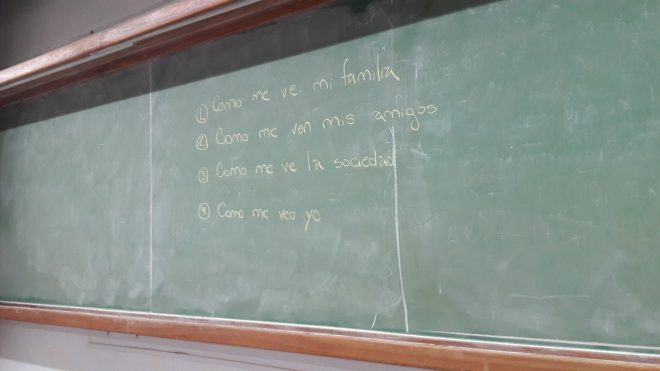 ① Como me ve mi familia
② Como me ven mis amigos
③ Como me ve la sociedad
④ Como me veo yo